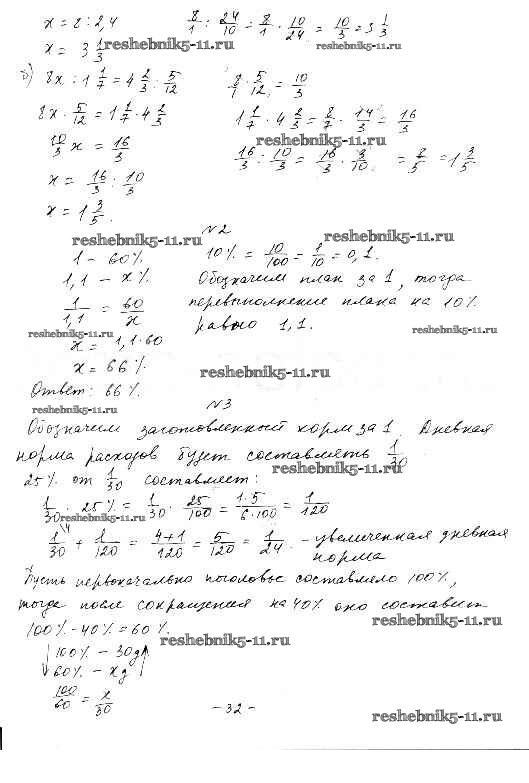 x = 8 : 2,4    8/1 : 24/10 = 8/1 · 10/24 = 10/3 = 3 1/3
x = 3 1/3    reshebnik5-11.ru    reshebnik5-11.ru
б) 8x : 1 1/7 = 4 2/3 · 5/12    8/1 · 5/12 = 10/3
8x · 5/12 = 1 1/7 · 4 2/3    1 1/7 · 4 2/3 = 8/7 · 14/3 = 16/3
reshebnik5-11.ru
10/3 x = 16/3    16/3 : 10/3 = 16/3 · 3/10 = 8/5 = 1 3/5
x = 16/3 : 10/3
x = 1 3/5.
№2
reshebnik5-11.ru    reshebnik5-11.ru
1 – 60%    10% = 10/100 = 1/10 = 0,1.
1,1 – x%    Обозначим план за 1, тогда
1/1,1 = 60/x    перевыполнение плана на 10%
reshebnik5-11.ru    равно 1,1.    reshebnik5-11.ru
x = 1,1·60
x = 66%    reshebnik5-11.ru
Ответ: 66%.
reshebnik5-11.ru    №3
Обозначим заготовленный корм за 1. Дневная
норма расходов будет составлять 1/30
25% от 1/30 составляет:    reshebnik5-11.ru
1/30 · 25% = 1/30 · 25/100 = 1·5/6·100 = 1/120
reshebnik5-11.ru
1/30 + 1/120 = 4+1/120 = 5/120 = 1/24. – увеличенная дневная
норма
Пусть первоначально поголовье составляло 100%,
тогда после сокращения на 40% оно составит
100% - 40% = 60%.    reshebnik5-11.ru
reshebnik5-11.ru
↓100% – 30д↑
↓60% – xд↑
100/60 = x/30    – 32 –
reshebnik5-11.ru